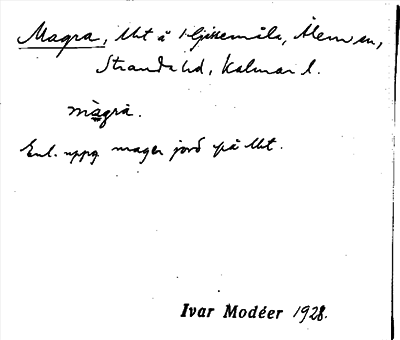 Magra, Ut å Hjissemåla, Ålem sn,
Stranda hd, Kalmar l.
màgrà.
Enl. uppg mager jord på Ut.
Ivar Modéer 1928.